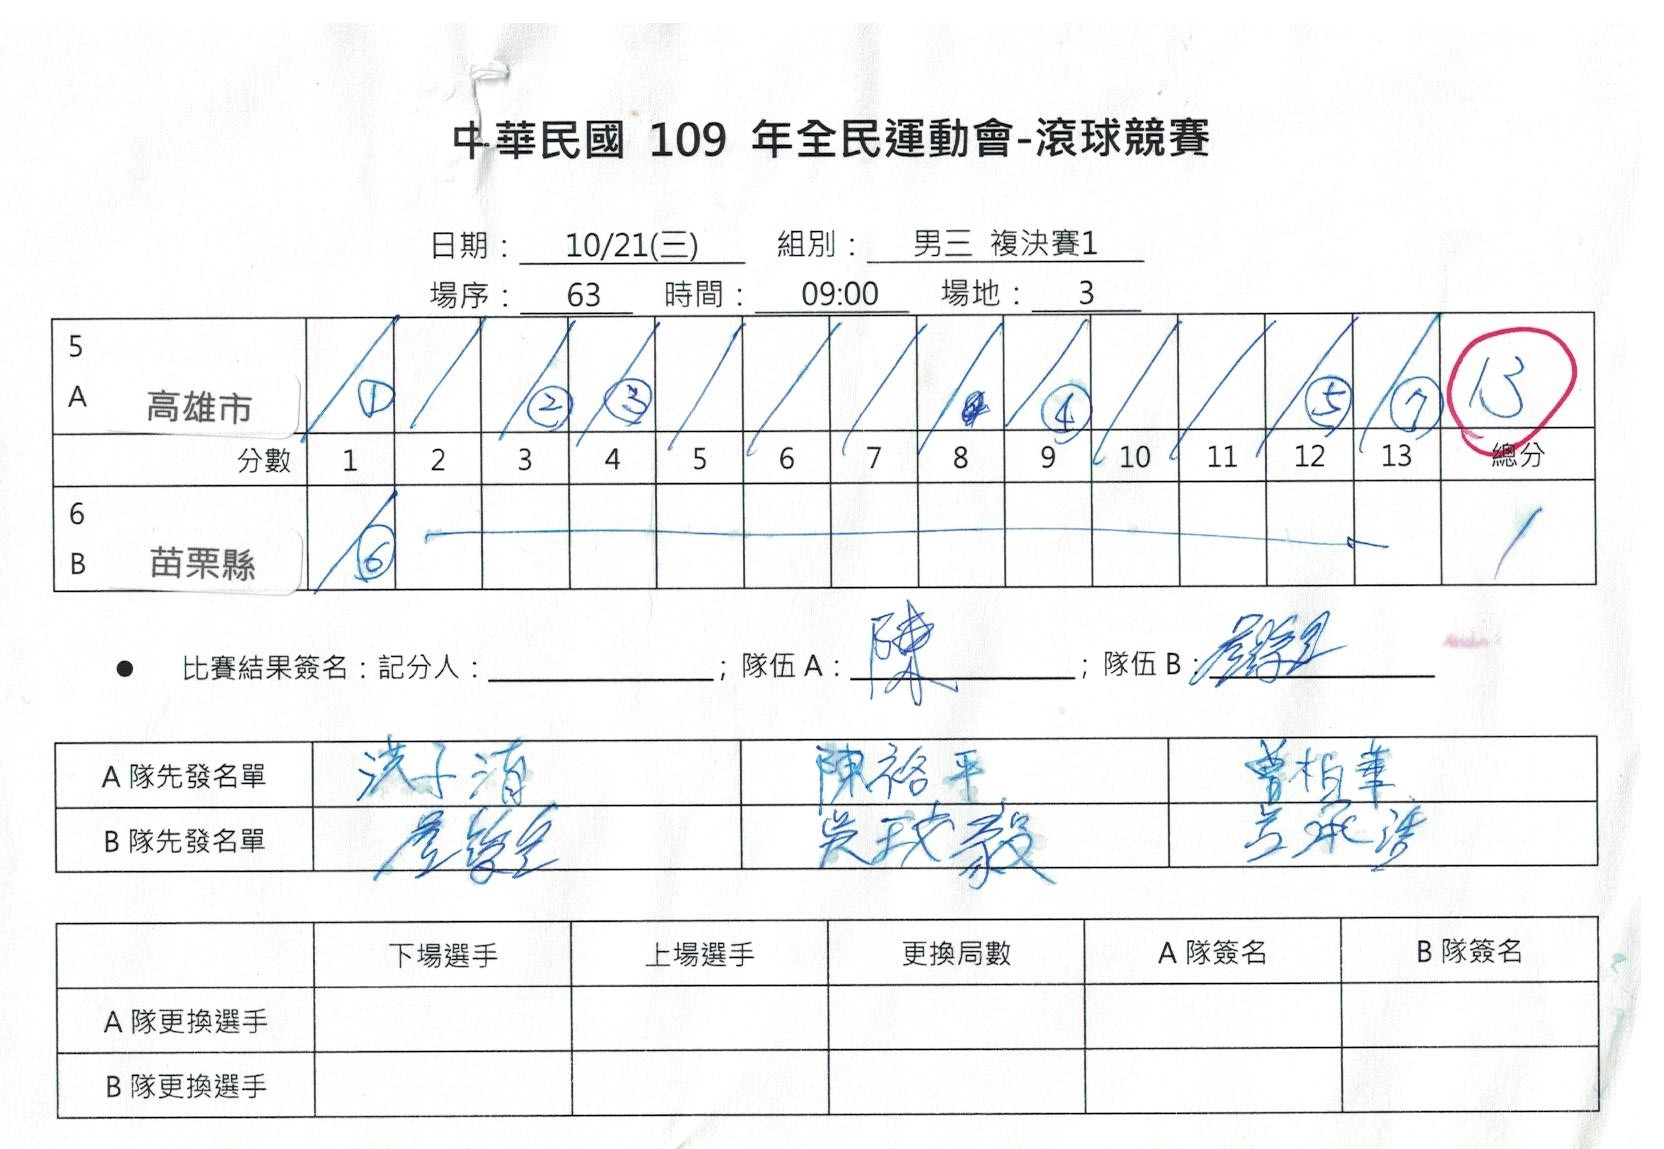 中華民國 109 年全民運動會-滾球競賽
日期： 10/21(三) 組別： 男三 複決賽1
場序： 63 時間： 09:00 場地： 3
5
A 高雄市 ① ② ③ ④ ⑤ ⑦ 13
分數 1 2 3 4 5 6 7 8 9 10 11 12 13 總分
6
B 苗栗縣 ⑥ 1
● 比賽結果簽名：記分人： ；隊伍 A： 陳 ；隊伍 B：
A 隊先發名單 洪子清 陳裕平 曾柏華
B 隊先發名單
下場選手 上場選手 更換局數 A 隊簽名 B 隊簽名
A 隊更換選手
B 隊更換選手